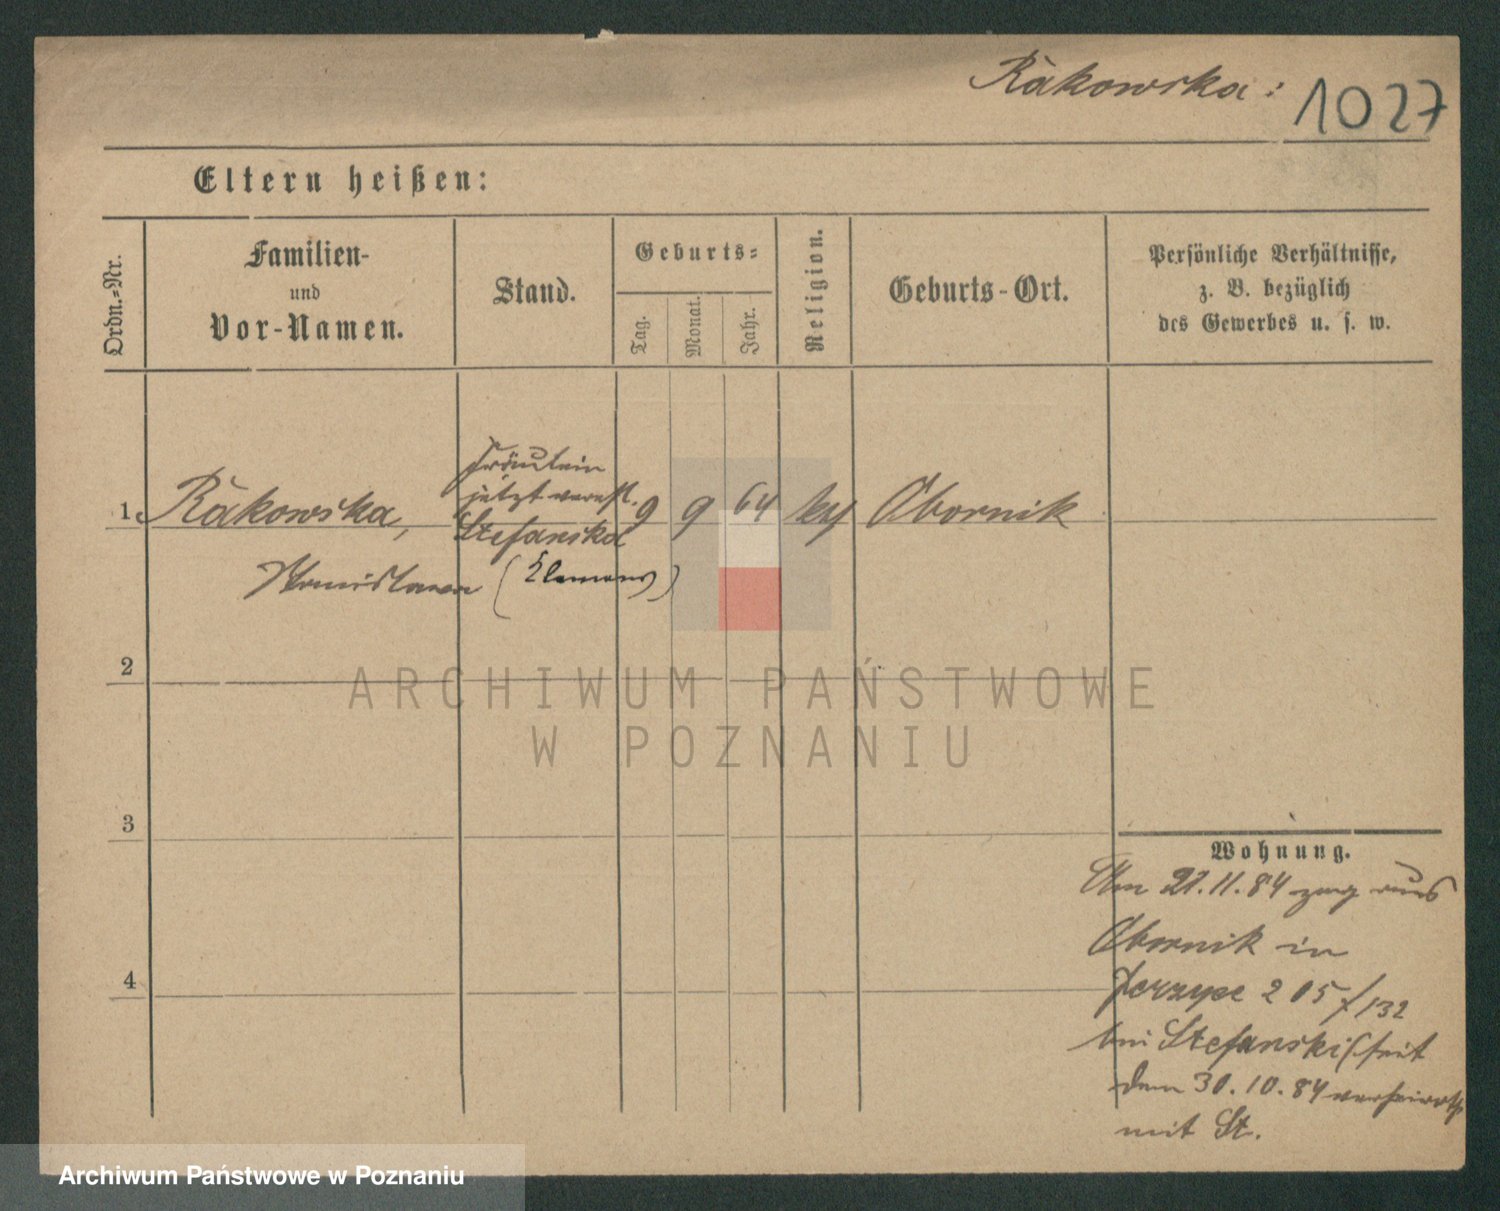 Rakowska: 1027
Eltern heißen:
Ordn.=Nr.
Familien-
und
Vor-Namen.
Stand.
Geburts=
Tag.
Monat.
Jahr.
Religion.
Geburts-Ort.
Persönliche Verhältnisse,
z. B. bezüglich
des Gewerbes u. s. w.
Fräulein
jetzt verehl.
1. Rakowska, Stefanska 9 9 64 Obornik
Stanislawa
2
ARCHIWUM PAŃSTWOWE
W POZNANIU
3
Wohnung.
Am 21.11.84 zog aus
4
Obornik in
Jerzyce 205/132
bei Stefanski (seit
dem 30.10.84 verheirath
mit St.
Archiwum Państwowe w Poznaniu